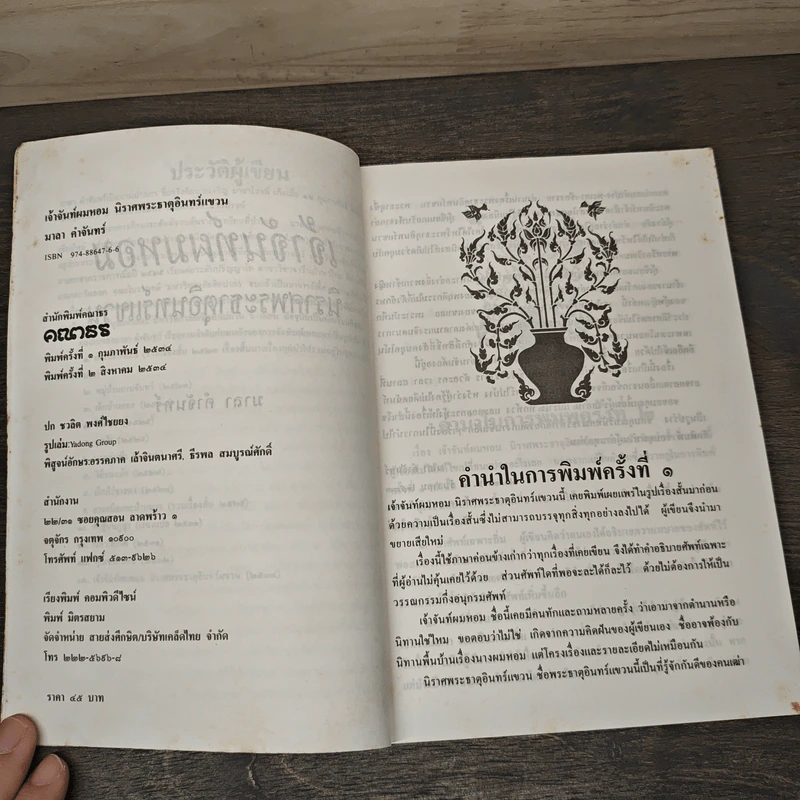 เจ้าจันท์ผมหอม นิราศพระธาตุอินทร์แขวน
มาลา คำจันทร์
ISBN 974-88647-6-6
สำนักพิมพ์คณาธร
คณาธร
พิมพ์ครั้งที่ ๑ กุมภาพันธ์ ๒๕๓๔
พิมพ์ครั้งที่ ๒ สิงหาคม ๒๕๓๔
ปก ชวลิต พงศ์ไชยยง
รูปเล่ม:Yadong Group
พิสูจน์อักษร:อรรคภาค เล้าจินตนาศรี, ธีรพล สมบูรณ์ศักดิ์
สำนักงาน
๒๒/๓๑ ซอยคุณสอน ลาดพร้าว ๑
จตุจักร กรุงเทพ ๑๐๙๐๐
โทรศัพท์ แฟกซ์ ๕๑๓-๙๖๒๖
เรียงพิมพ์ คอมพิวดีไซน์
พิมพ์ มิตรสยาม
จัดจำหน่าย สายส่งศึกษิต/บริษัทเคล็ดไทย จำกัด
โทร ๒๒๒-๕๖๙๖-๘
ราคา ๔๕ บาท
คำนำในการพิมพ์ครั้งที่ ๑
เจ้าจันท์ผมหอม นิราศพระธาตุอินทร์แขวนนี้ เคยพิมพ์เผยแพร่ในรูปเรื่องสั้นมาก่อน
ด้วยความเป็นเรื่องสั้นซึ่งไม่สามารถบรรจุทุกสิ่งทุกอย่างลงไปได้ ผู้เขียนจึงนำมา
ขยายเสียใหม่
เรื่องนี้ใช้ภาษาค่อนข้างเก่ากว่าทุกเรื่องที่เคยเขียน จึงได้ทำคำอธิบายศัพท์เฉพาะ
ที่ผู้อ่านไม่คุ้นเคยไว้ด้วย ส่วนศัพท์ใดที่พอจะละได้ก็ละไว้ ด้วยไม่ต้องการให้เป็น
วรรณกรรมกึ่งอนุกรมศัพท์
เจ้าจันท์ผมหอม ชื่อนี้เคยมีคนทักและถามหลายครั้ง ว่าเอามาจากตำนานหรือ
นิทานใช่ไหม ขอตอบว่าไม่ใช่ เกิดจากความคิดฝันของผู้เขียนเอง ชื่ออาจพ้องกับ
นิทานพื้นบ้านเรื่องนางผมหอม แต่โครงเรื่องและรายละเอียดไม่เหมือนกัน
นิราศพระธาตุอินทร์แขวน ชื่อพระธาตุอินทร์แขวนนี้เป็นที่รู้จักกันดีของคนเฒ่า